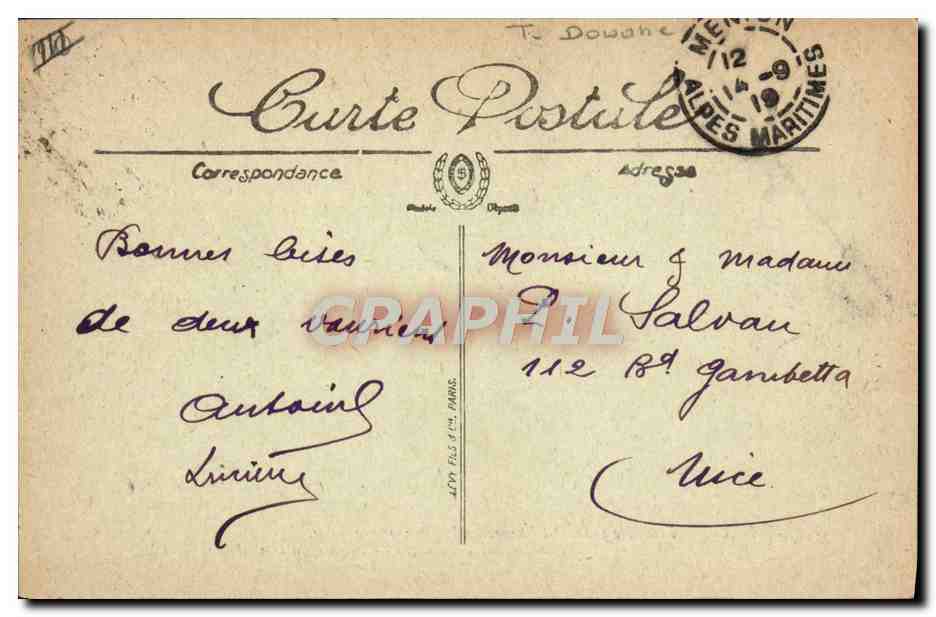 T. Douane
MENTON
12
14 -9
19
ALPES MARITIMES
Carte Postale
Correspondance
Adresse
Modèle Déposé
Bonnes bises
de deux vauriens
Antoine
Lucienne
Monsieur & Madame
P. Salvan
112 Bd Gambetta
Nice
LEVY FILS & Cie, PARIS.
CRAPHIL